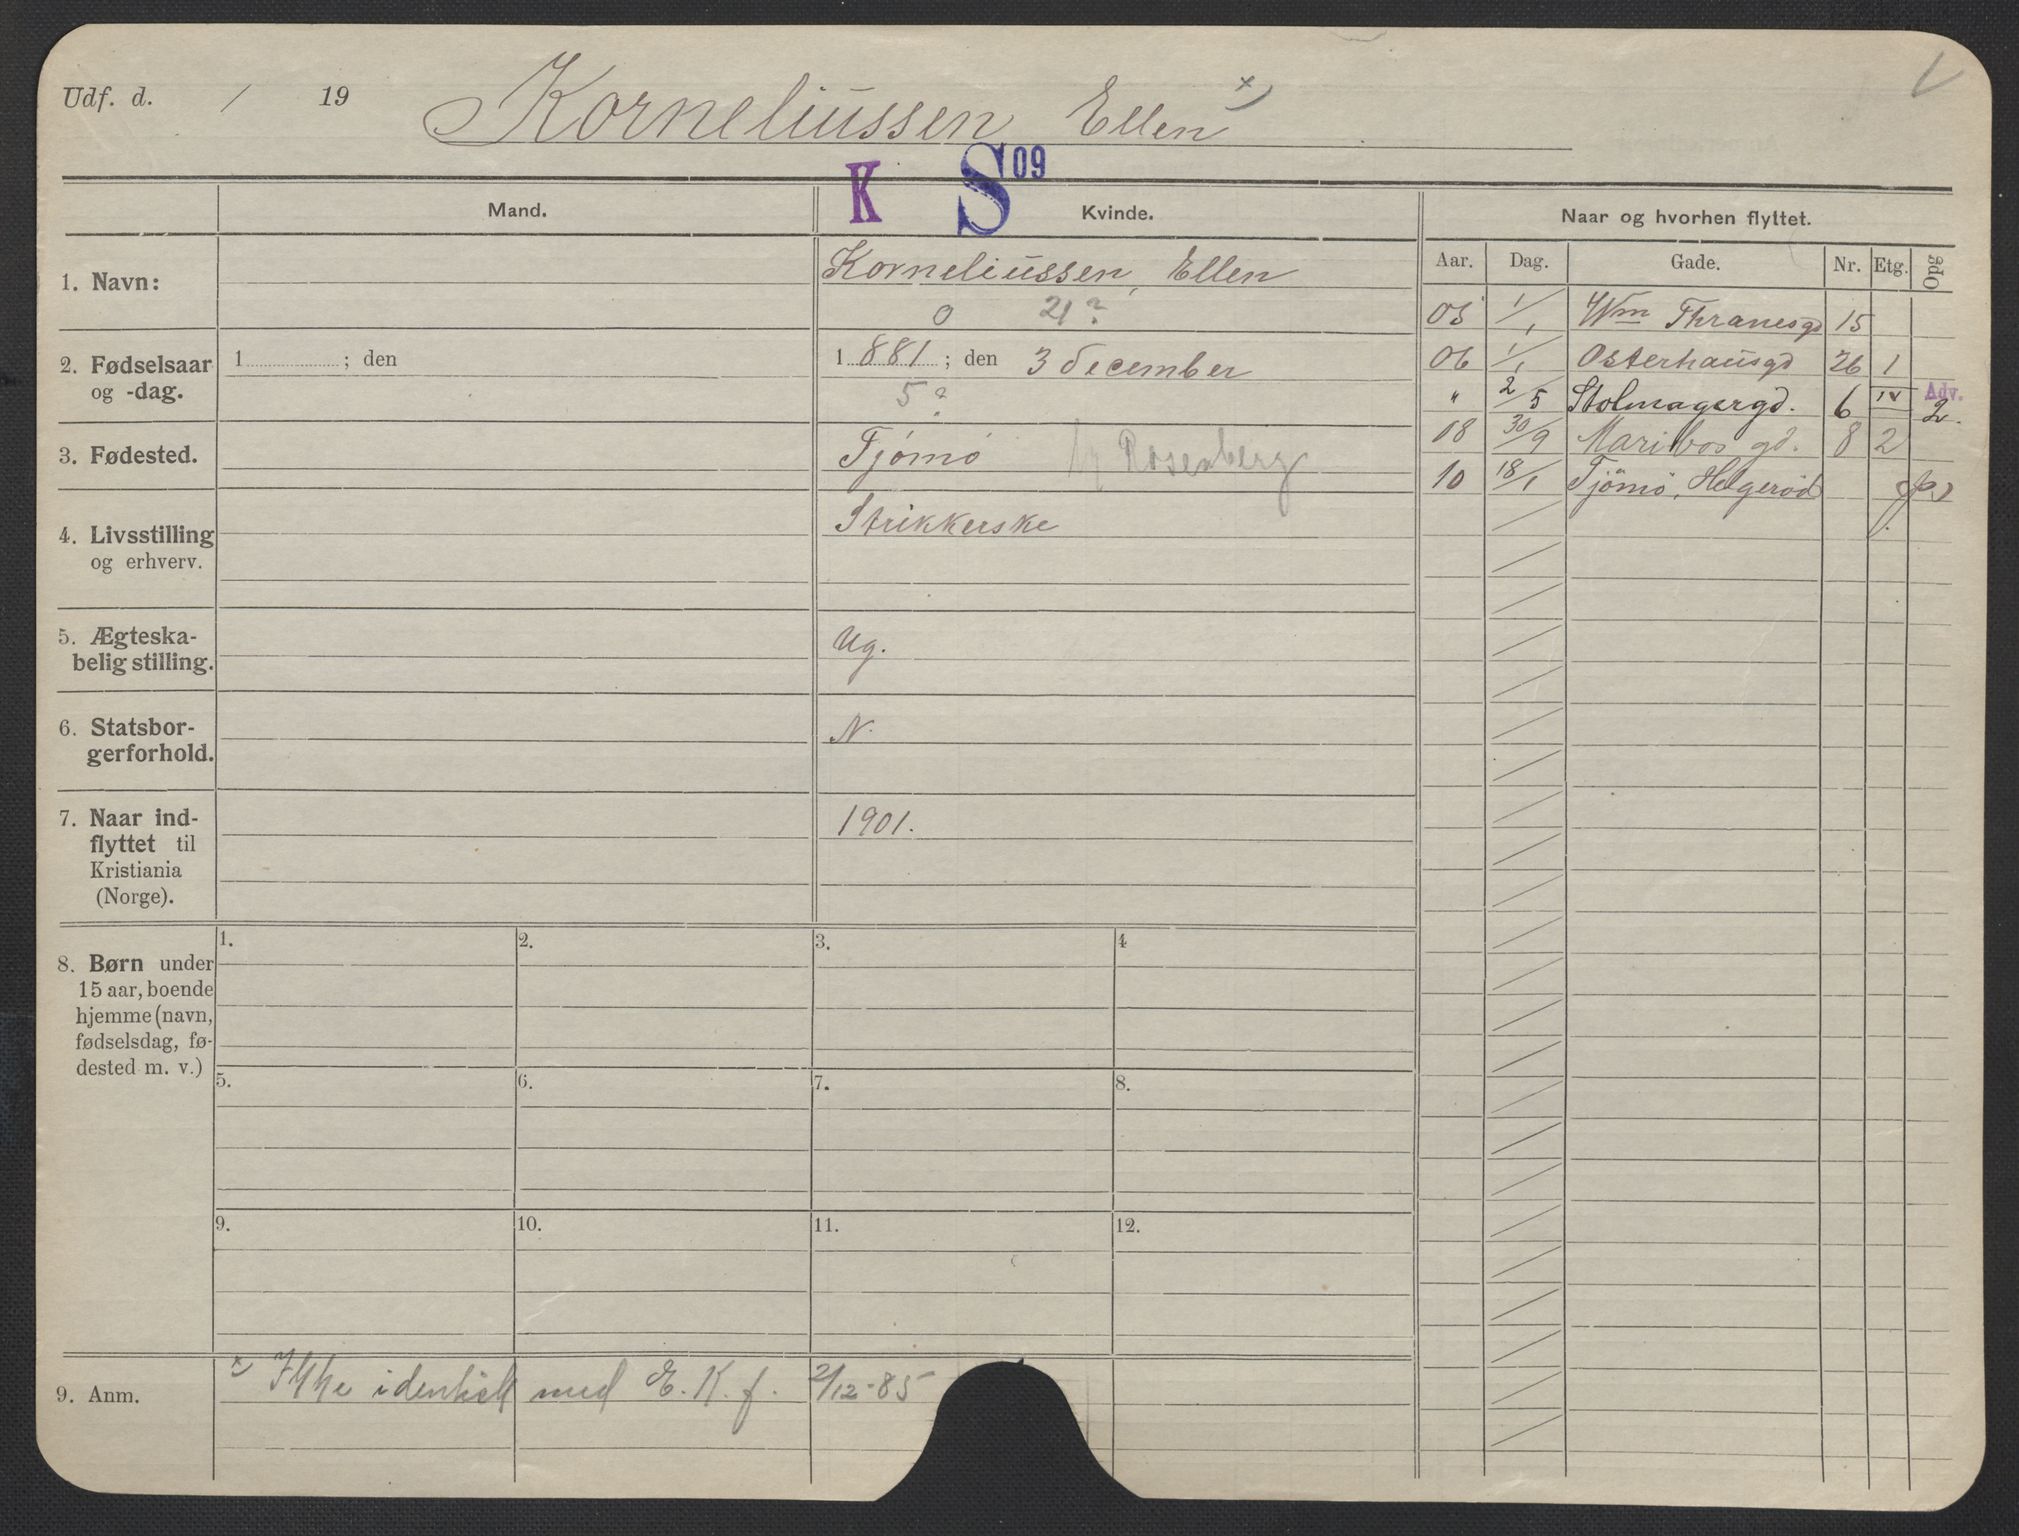 Udf. d. / 19 Korneliussen Ellen x)
K S 09
Mand. Kvinde. Naar og hvorhen flyttet.
Aar. Dag. Gade. Nr. Etg. Opg
1. Navn: Korneliussen, Ellen
0 21?
2. Fødselsaar og -dag. 1 ; den 1 881 ; den 3 december
5?
3. Fødested. Tjømø Rosenberg
4. Livsstilling og erhverv. Strikkerske
5. Ægteskabelig stilling. Ug.
6. Statsborgerforhold. N.
7. Naar indflyttet til Kristiania (Norge). 1901.
05 1/1 Wm Thranesgd 15
06 1/1 Osterhausgd 26 1
" 2/5 Stolmagergd. 6 IV Adv. 2.
08 30/9 Maribos gd. 8 2
10 18/1 Tjömö, Helgeröd
8. Børn under
15 aar, boende
hjemme (navn,
fødselsdag, fø-
dested m. v.)
1. 2. 3. 4
5. 6. 7. 8.
9. 10. 11. 12.
9. Anm. x) Ikke identisk med E. K. f. 2/12-85